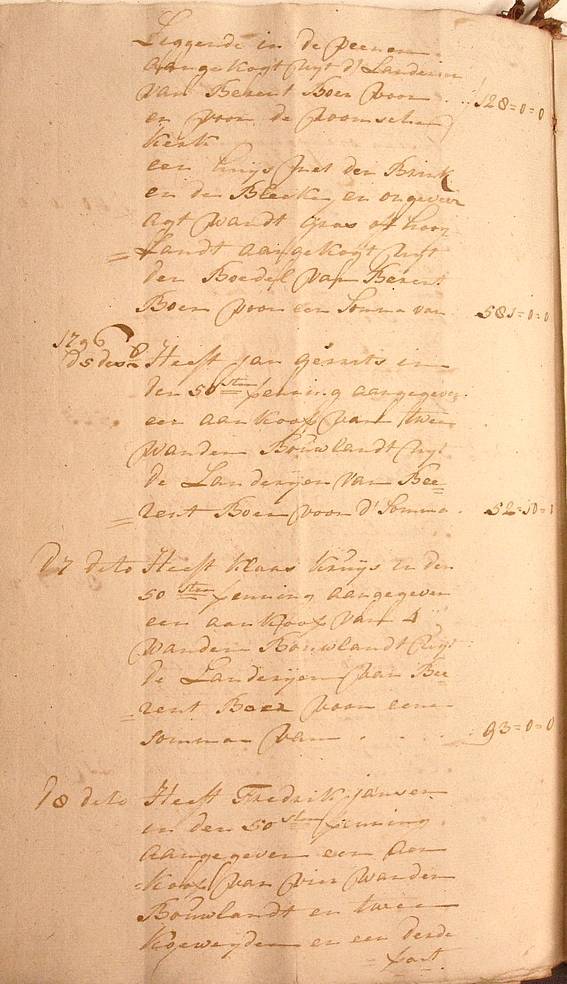 Leggende in de peenen
aangekogt uyt d' Landerien
van Berent Boer voor . . . 128=0=0
en voor de roomsche
Kerk
een huys met den Brink
en den Bleeke en ongeveer
agt wandt gras of hooy
= Landt aangekogt uyt
den Boedel van Berent
Boer voor een somma van 581=0=0
1796
D5 des Heeft jan gerrits in
den 50 sten penning aangegeven
een aankoop van twee
wanden Bouwlandt uyt
de Landerijen van Bee=
=rent Boer voor d' Somma . 52=10=
D7 dato Heeft Klaas Kruys in den
50 sten penning aangegeven
een aankoop van 4
wanden Bouwlandt uyt
de Landerijen van Bee
=rent Boer voor eene
somma van . . . 93=0=0
D8 dato Heeft Fredrik jansen
in den 50 sten penning
aangegeven een aan
=Koop van vier wanden
Bouwlandt en twee
Koeweyden en een derde
=part